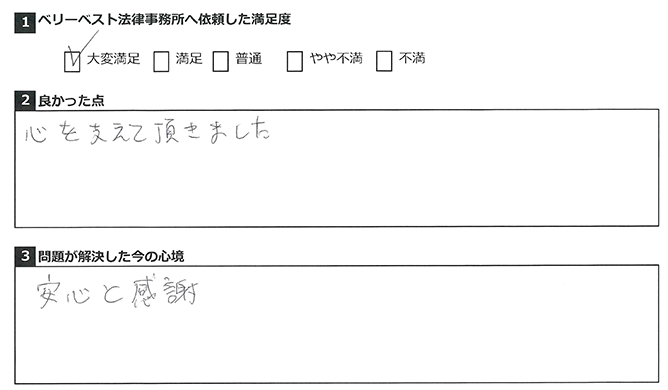 1 ベリーベスト法律事務所へ依頼した満足度
大変満足 満足 普通 やや不満 不満
2 良かった点
心を支えて頂きました
3 問題が解決した今の心境
安心と感謝